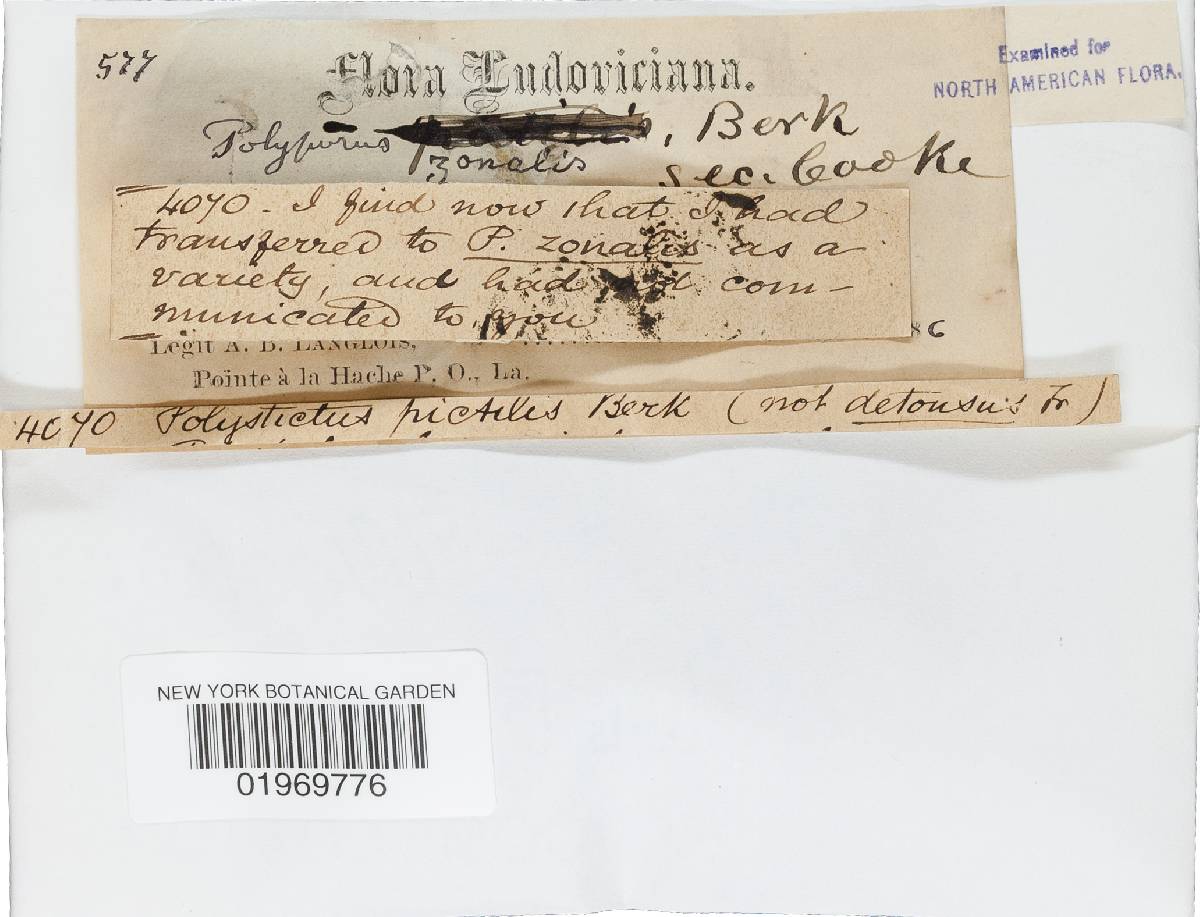 577
Flora Ludoviciana.
Examined for
NORTH AMERICAN FLORA.
Polyporus , Berk
zonalis sec. Cooke
4070 - I find now that I had
transferred to P. zonalis as a
variety, and had not com-
municated to you
86
Legit A. B. LANGLOIS,
Pointe à la Hache P. O., La.
4070 Polystictus pictilis Berk (not detonsus Fr)
NEW YORK BOTANICAL GARDEN
01969776